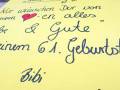 Wir wünschen Dir von
❤en alles
be & Gute
zum 61. Geburtst
Bibi